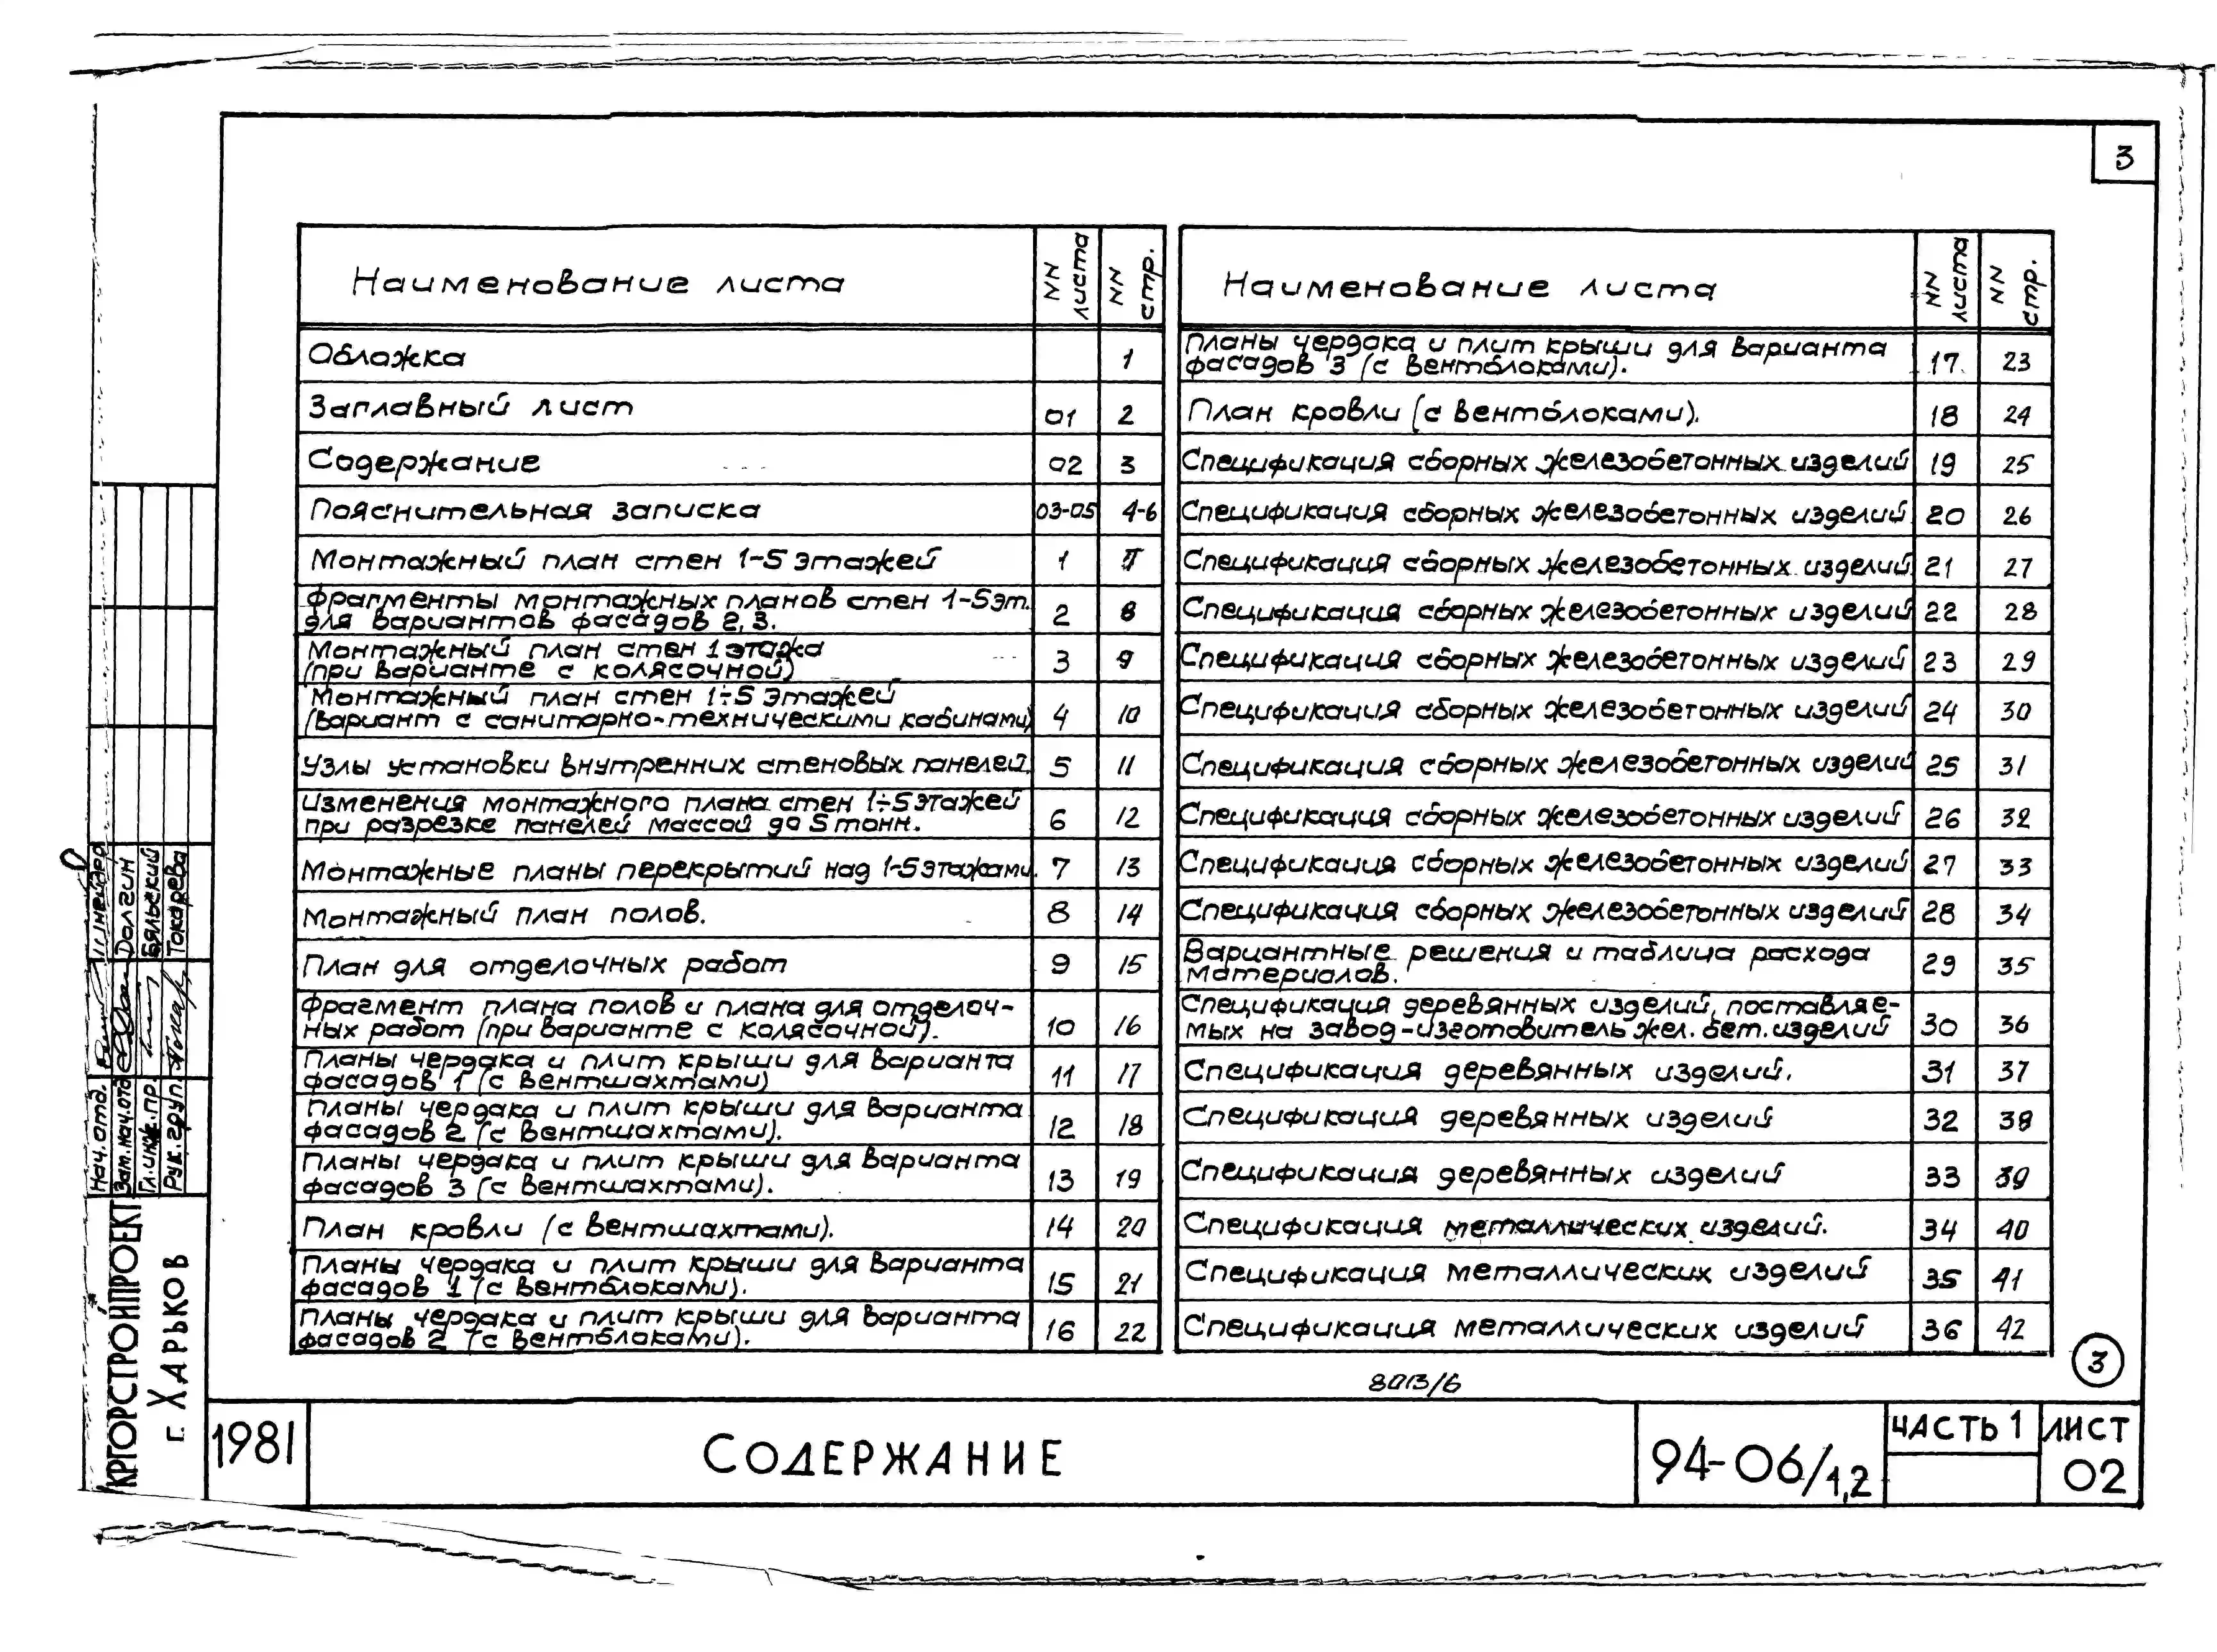 3
Наименование листа
NN листа
NN стр.
Обложка 1
Заглавный лист 01 2
Содержание 02 3
Пояснительная записка 03-05 4-6
Монтажный план стен 1-5 этажей 1 7
Фрагменты монтажных планов стен 1-5 эт.
для вариантов фасадов 2, 3. 2 8
Монтажный план стен 1 этажа
(при варианте с колясочной) 3 9
Монтажный план стен 1÷5 этажей
(вариант с санитарно-техническими кабинами) 4 10
Узлы установки внутренних стеновых панелей. 5 11
Изменения монтажного плана стен 1÷5 этажей
при разрезке панелей массой до 5 тонн. 6 12
Монтажные планы перекрытий над 1-5 этажами. 7 13
Монтажный план полов. 8 14
План для отделочных работ 9 15
Фрагмент плана полов и плана для отделоч-
ных работ (при варианте с колясочной). 10 16
Планы чердака и плит крыши для варианта
фасадов 1 (с вентшахтами) 11 17
Планы чердака и плит крыши для варианта
фасадов 2 (с вентшахтами). 12 18
Планы чердака и плит крыши для варианта
фасадов 3 (с вентшахтами). 13 19
План кровли (с вентшахтами). 14 20
Планы чердака и плит крыши для варианта
фасадов 1 (с вентблоками). 15 21
Планы чердака и плит крыши для варианта
фасадов 2 (с вентблоками). 16 22
Наименование листа
NN листа
NN стр.
Планы чердака и плит крыши для варианта
фасадов 3 (с вентблоками). 17 23
План кровли (с вентблоками). 18 24
Спецификация сборных железобетонных изделий 19 25
Спецификация сборных железобетонных изделий 20 26
Спецификация сборных железобетонных изделий 21 27
Спецификация сборных железобетонных изделий 22 28
Спецификация сборных железобетонных изделий 23 29
Спецификация сборных железобетонных изделий 24 30
Спецификация сборных железобетонных изделий 25 31
Спецификация сборных железобетонных изделий 26 32
Спецификация сборных железобетонных изделий 27 33
Спецификация сборных железобетонных изделий 28 34
Вариантные решения и таблица расхода
материалов. 29 35
Спецификация деревянных изделий, поставляе-
мых на завод-изготовитель жел. бет. изделий 30 36
Спецификация деревянных изделий. 31 37
Спецификация деревянных изделий 32 38
Спецификация деревянных изделий 33 39
Спецификация металлических изделий. 34 40
Спецификация металлических изделий 35 41
Спецификация металлических изделий 36 42
3
8013/6
Нач. отд. Шнейдер
Зам. нач. отд. Долгин
Гл. инж. пр. Бяльский
Рук. груп. Токарева
УКРГОРСТРОЙПРОЕКТ
г. Харьков
1981
Содержание
94-06/1,2
Часть 1
Лист
02